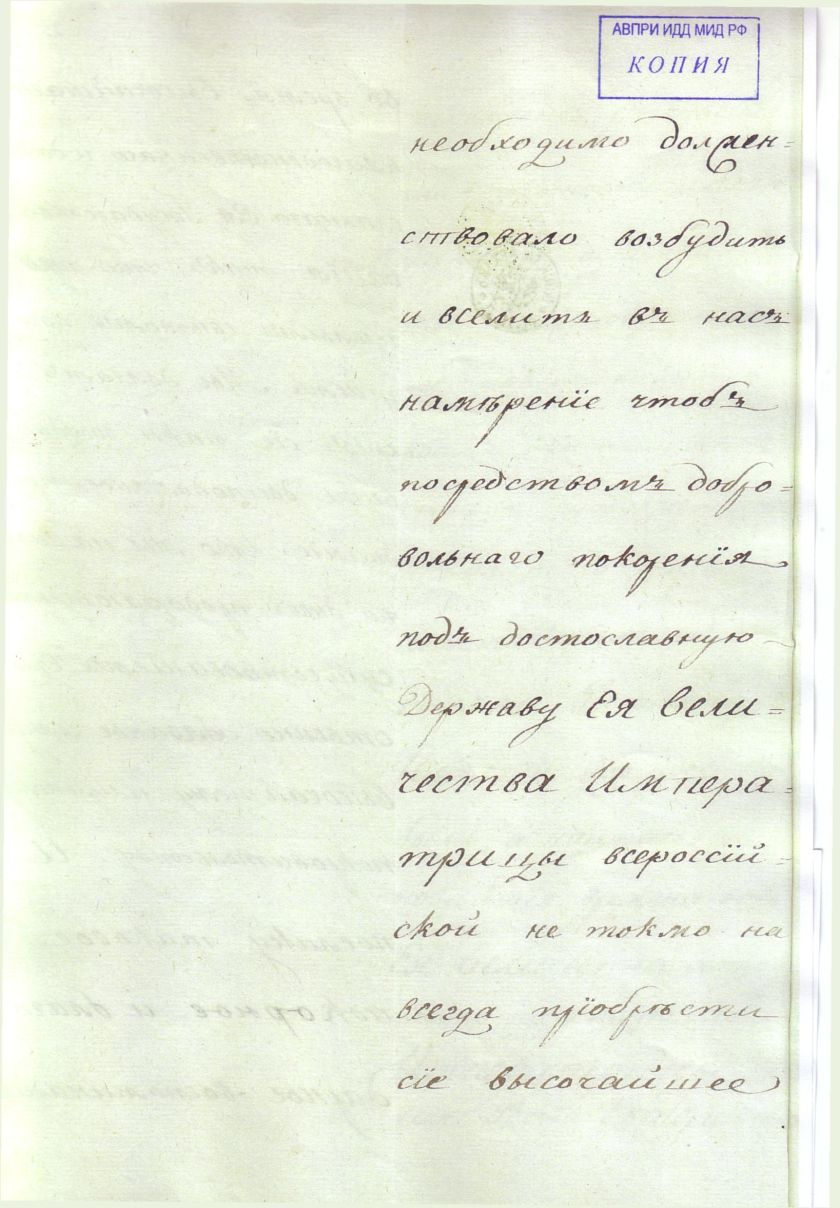 АВПРИ ИДД МИД РФ
КОПИЯ
необходимо должен=
ствовало возбудить
и вселить въ насъ
намѣренїе чтобъ
посредствомъ добро=
вольнаго покоренїя
подъ достославную
Державу Ея Вели=
чества Импера=
трицы всероссїй=
ской не токмо на
всегда прїобрѣсти
сїе высочайшее